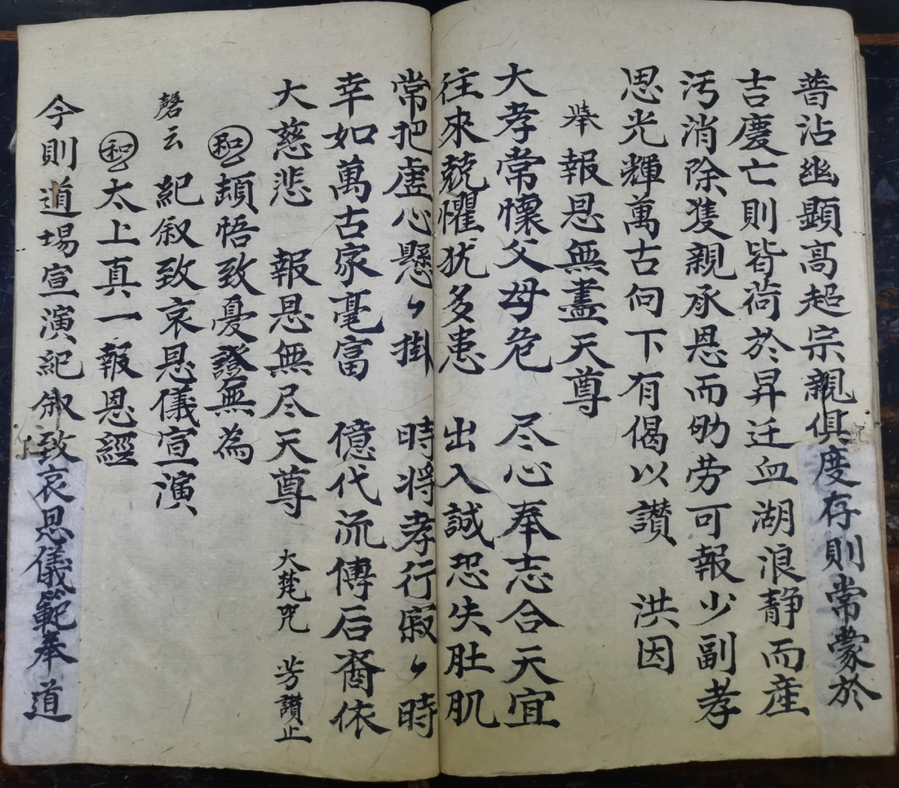 普沾幽顯高超宗親俱度存則常蒙於
吉慶亡則皆荷於昇迁血湖浪静而産
汚消除隻親承恩而劬劳可報少副孝
思光輝萬古向下有偈以讃　洪因
報恩無盡天尊
大孝常懷父母危　尽心奉志合天宜
往來兢懼犹多患　出入誠恐失肚肌
常把虚心懸々掛　時将孝行寂々時
幸如萬古家毫富　億代流傳后裔依
大慈悲　報恩無尽天尊　大梵咒　芳讃止
和　頡悟致憂發無為
磬云　紀叙致哀恩儀宣演
和　太上真一報恩經
今則道場宣演紀叙致哀恩儀範奉道